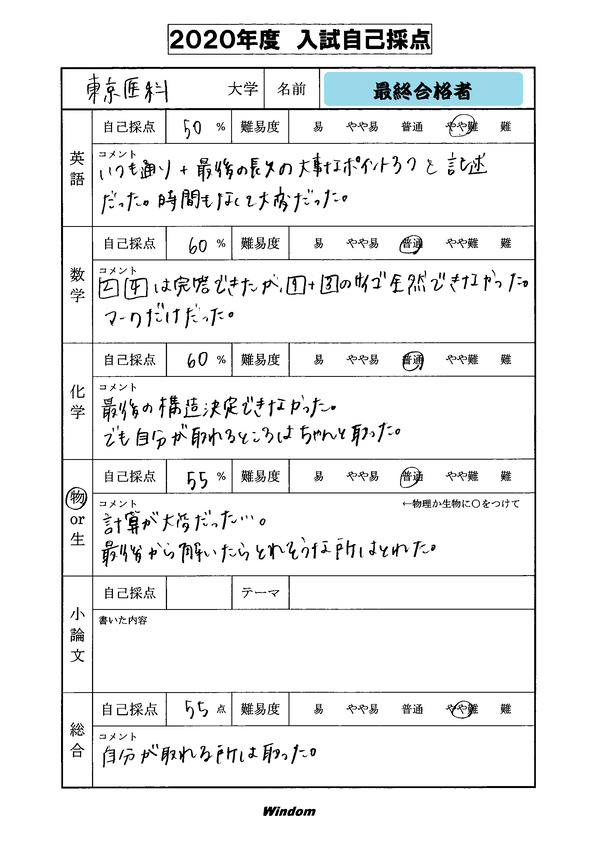 2020年度 入試自己採点
東京医科 大学 名前 最終合格者
英語 自己採点 50 % 難易度 易 やや易 普通 やや難 難
コメント
いつも通り + 最後の長文の大事なポイント3つを記述
だった。時間もなくて大変だった。
数学 自己採点 60 % 難易度 易 やや易 普通 やや難 難
コメント
2 4 は完答できたが、1+3のサイゴ全然できなかった。
マークだけだった。
化学 自己採点 60 % 難易度 易 やや易 普通 やや難 難
コメント
最後の構造決定できなかった。
でも自分が取れるところはちゃんと取った。
物 or 生 自己採点 55 % 難易度 易 やや易 普通 やや難 難
コメント ←物理か生物に○をつけて
計算が大変だった…。
最後から解いたらとれそうな所はとれた。
小論文 自己採点 テーマ
書いた内容
総合 自己採点 55 点 難易度 易 やや易 普通 やや難 難
コメント
自分が取れる所は取った。
Windom